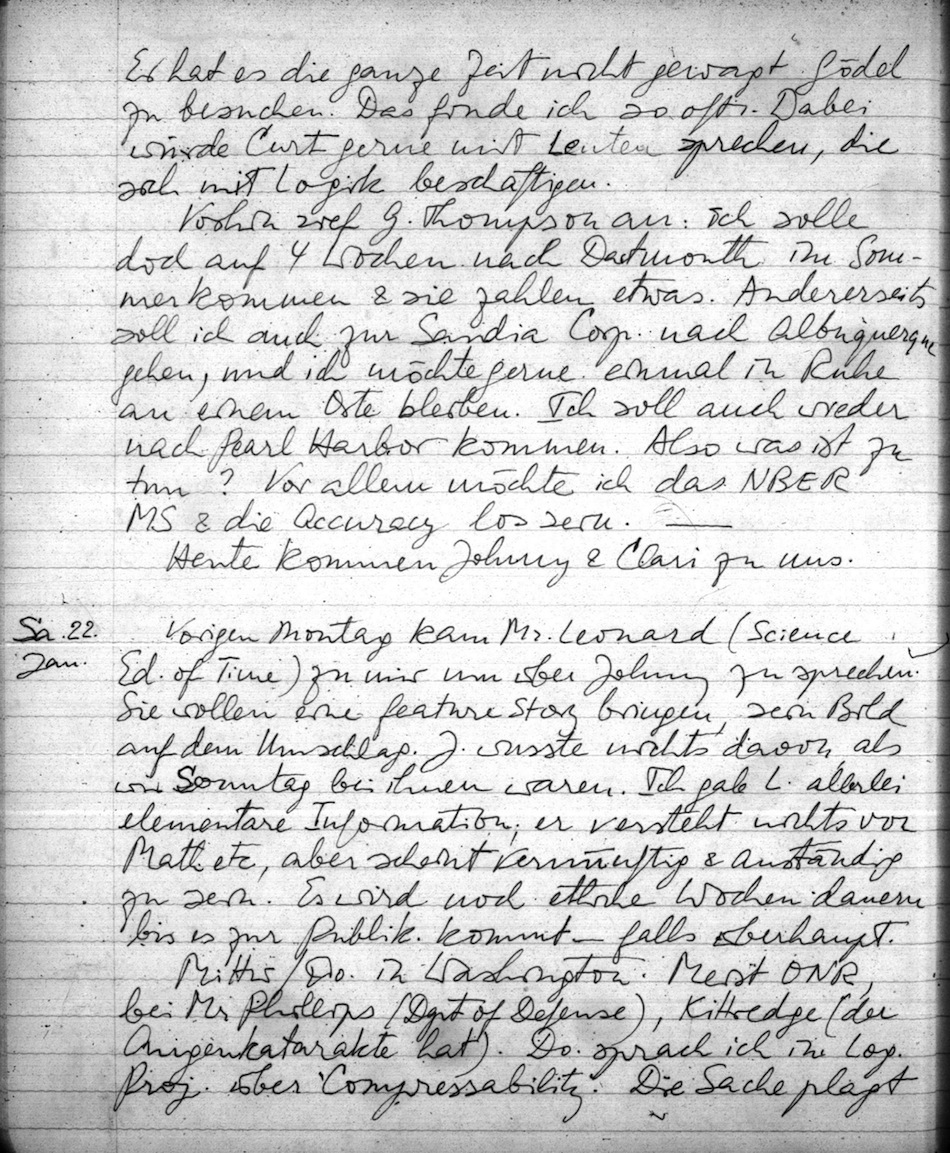 Er hat es die ganze Zeit nicht gewagt Gödel
zu besuchen. Das finde ich so oft. Dabei
würde Curt gerne mit Leuten sprechen, die
sich mit Logik beschäftigen.
Vorhin rief G. Thompson an: ich solle
doch auf 4 Wochen nach Dartmouth im Som-
mer kommen & sie zahlen etwas. Andererseits
soll ich auch zur Sandia Corp. nach Albuquerque
gehen, und ich möchte gerne einmal in Ruhe
an einem Orte bleiben. Ich soll auch wieder
nach Pearl Harbor kommen. Also was ist zu
tun? Vor allem möchte ich das NBER
MS & die Accuracy los sein. —
Heute kommen Johnny & Clari zu uns.
Sa. 22. Vorigen Montag kam Mr. Leonard (Science
Jan. Ed. of Time) zu mir um über Johnny zu sprechen.
Sie wollen eine feature Story bringen, sein Bild
auf dem Umschlag. J. wusste nichts davon, als
wir Sonntag bei ihnen waren. Ich gab L. allerlei
elementare Information; er versteht nichts von
Math etc, aber scheint vernünftig & anständig
zu sein. Es wird noch etliche Wochen dauern
bis es zur Publik. kommt – falls überhaupt.
Mittw/Do. in Washington. Meist ONR,
bei Mr Phillips (Dept of Defense), Kittredge (der
Augenkatarakte hat). Do. sprach ich im Log.
Proj. über "Compressability". Die Sache plagt